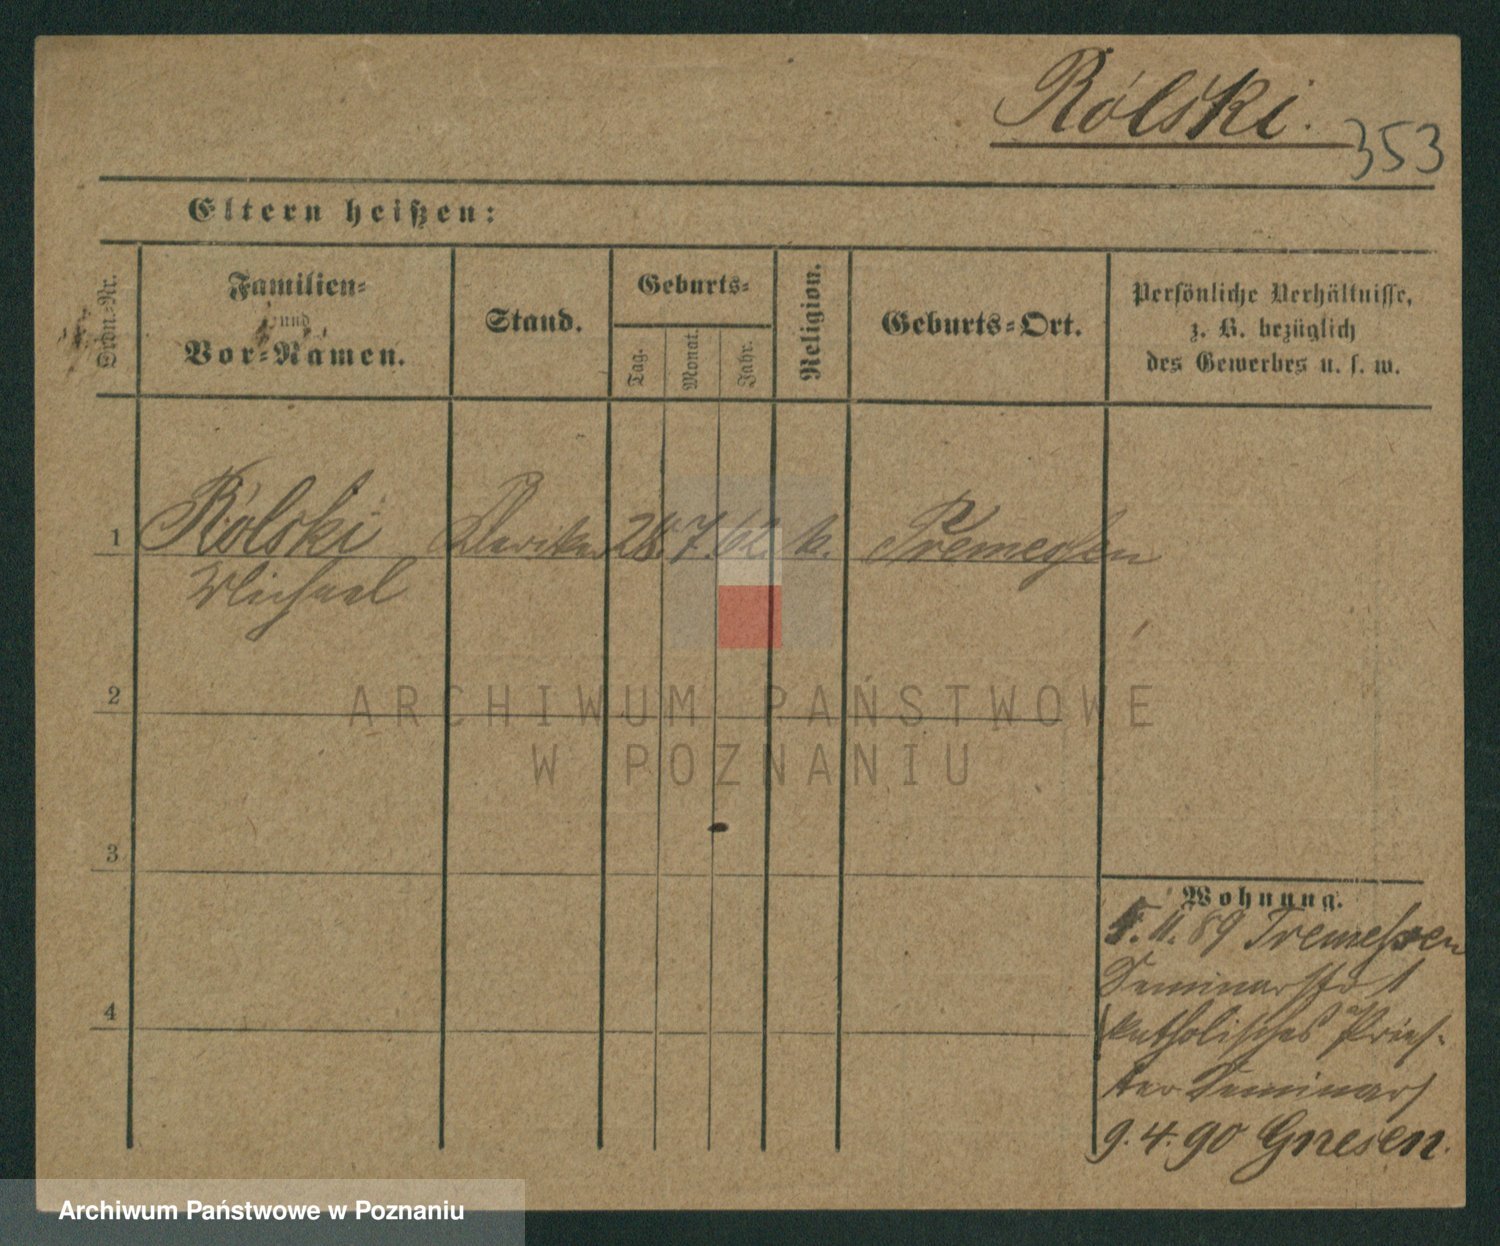 Rólski.
353
Eltern heißen:
Ordn.-Nr.
Familien-
und
Vor-Namen.
Stand.
Geburts-
Tag.
Monat.
Jahr.
Religion.
Geburts-Ort.
Persönliche Verhältnisse,
z. B. bezüglich
des Gewerbes u. s. w.
1 Rólski Kleriker 28. 7. 62. k. Tremessen
Michael
2
ARCHIWUM PAŃSTWOWE
W POZNANIU
3
4
Wohnung.
5. 11. 89 Tremessen
Seminarstr 1
(katholisches Pries-
ter Seminar)
9. 4. 90 Gnesen.
Archiwum Państwowe w Poznaniu